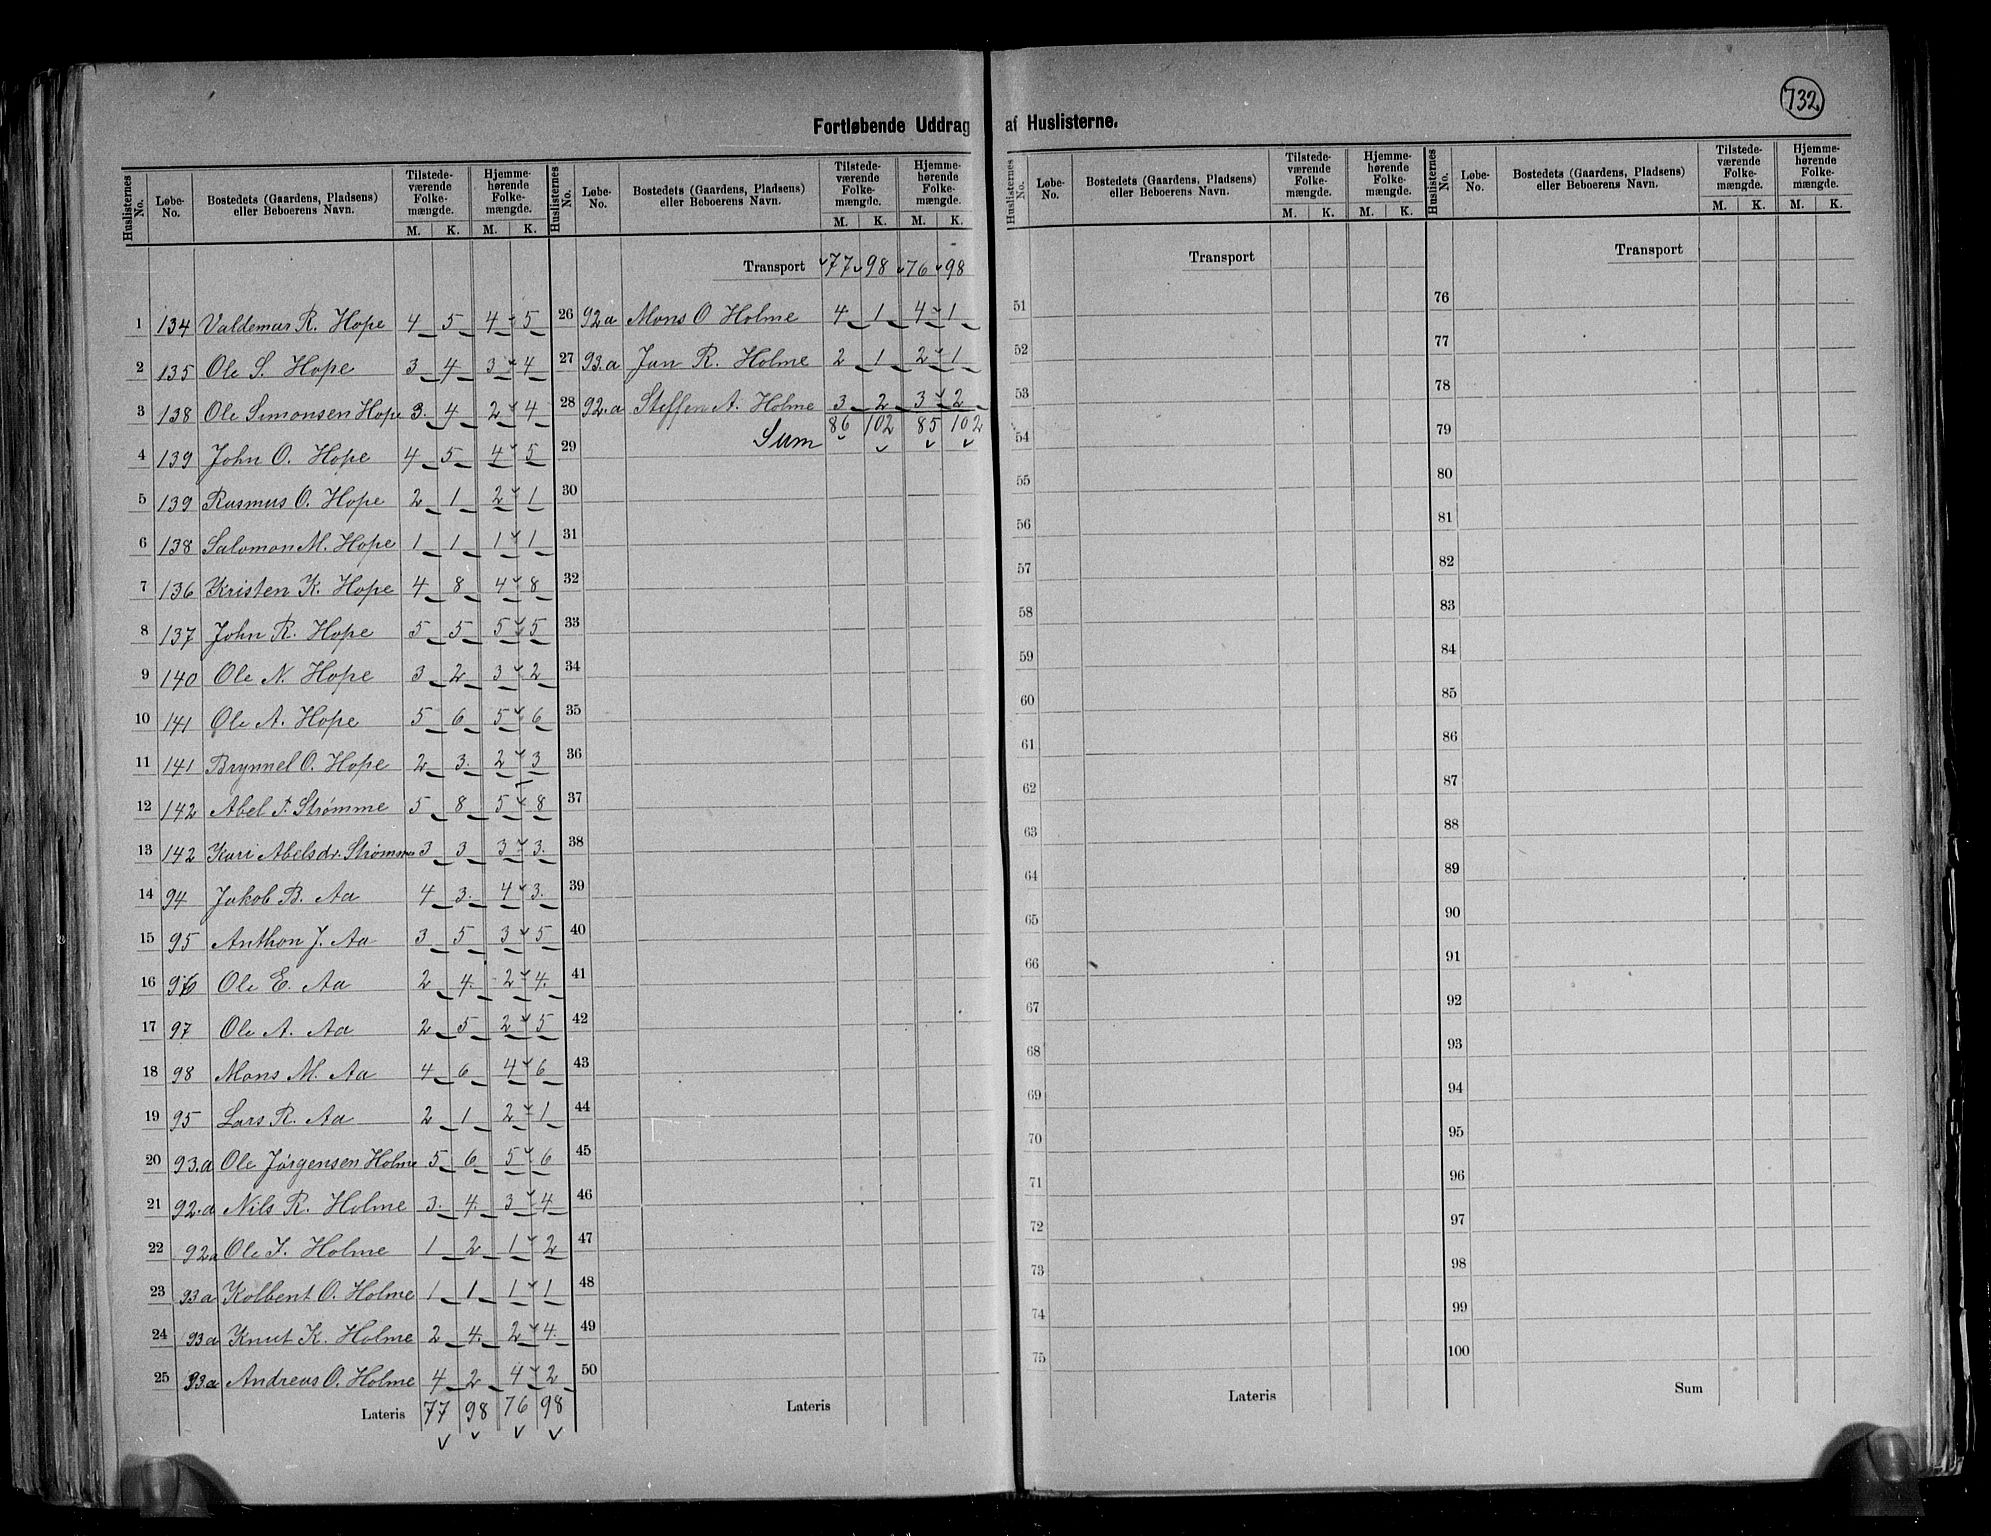 732
Fortløbende Uddrag af Huslisterne.
Huslisternes No. Løbe-No. Bostedets (Gaardens, Pladsens) eller Beboerens Navn. Tilstedeværende Folkemængde. M. K. Hjemmehørende Folkemængde. M. K.
1 134 Valdemar R. Hope 4 5 4 5
2 135 Ole S. Hope 3 4 3 4
3 138 Ole Simonsen Hope 3. 4 2 4
4 139 John O. Hope 4 5 4 5
5 139 Rasmus O. Hope 2 1 2 1
6 138 Salomon M. Hope 1 1 1 1
7 136 Kristen K. Hope 4 8 4 8
8 137 John R. Hope 5 5 5 5
9 140 Ole N. Hope 3 2 3 2
10 141 Ole A. Hope 5 6 5 6
11 141 Brynnel O. Hope 2 3. 2 3
12 142 Abel T. Strømme 5 8 5 8
13 142 Kari Abelsdr. Strømme 3 3 3 3.
14 94 Jakob B. Aa 4 3. 4 3.
15 95 Anthon J. Aa 3 5 3 5
16 96 Ole E. Aa 2 4. 2 4.
17 97 Ole A. Aa 2 5 2 5
18 98 Mons M. Aa 4 6 4 6
19 95 Lars R. Aa 2 1 2 1
20 93.a Ole Jørgensen Holme 5 6 5 6
21 92.a Nils R. Holme 3. 4. 3 4
22 92a Ole J. Holme 1 2 1 2
23 93a Kolbent O. Holme 1 1 1 1
24 93a Knut K. Holme 2 4. 2 4.
25 93a Andreas O. Holme 4 2 4 2
Lateris 77 98 76 98
Huslisternes No. Løbe-No. Bostedets (Gaardens, Pladsens) eller Beboerens Navn. Tilstedeværende Folkemængde. M. K. Hjemmehørende Folkemængde. M. K.
Transport 77 98 76 98
26 92a Mons O Holme 4 1 4 1
27 93.a Jan R. Holme 2 1 2 1
28 92.a Steffen A. Holme 3 2 3 2
29 Sum 86 102 85 102
30
31
32
33
34
35
36
37
38
39
40
41
42
43
44
45
46
47
48
49
50
Lateris
Huslisternes No. Løbe-No. Bostedets (Gaardens, Pladsens) eller Beboerens Navn. Tilstedeværende Folkemængde. M. K. Hjemmehørende Folkemængde. M. K.
Transport
51
52
53
54
55
56
57
58
59
60
61
62
63
64
65
66
67
68
69
70
71
72
73
74
75
Lateris
Huslisternes No. Løbe-No. Bostedets (Gaardens, Pladsens) eller Beboerens Navn. Tilstedeværende Folkemængde. M. K. Hjemmehørende Folkemængde. M. K.
Transport
76
77
78
79
80
81
82
83
84
85
86
87
88
89
90
91
92
93
94
95
96
97
98
99
100
Sum